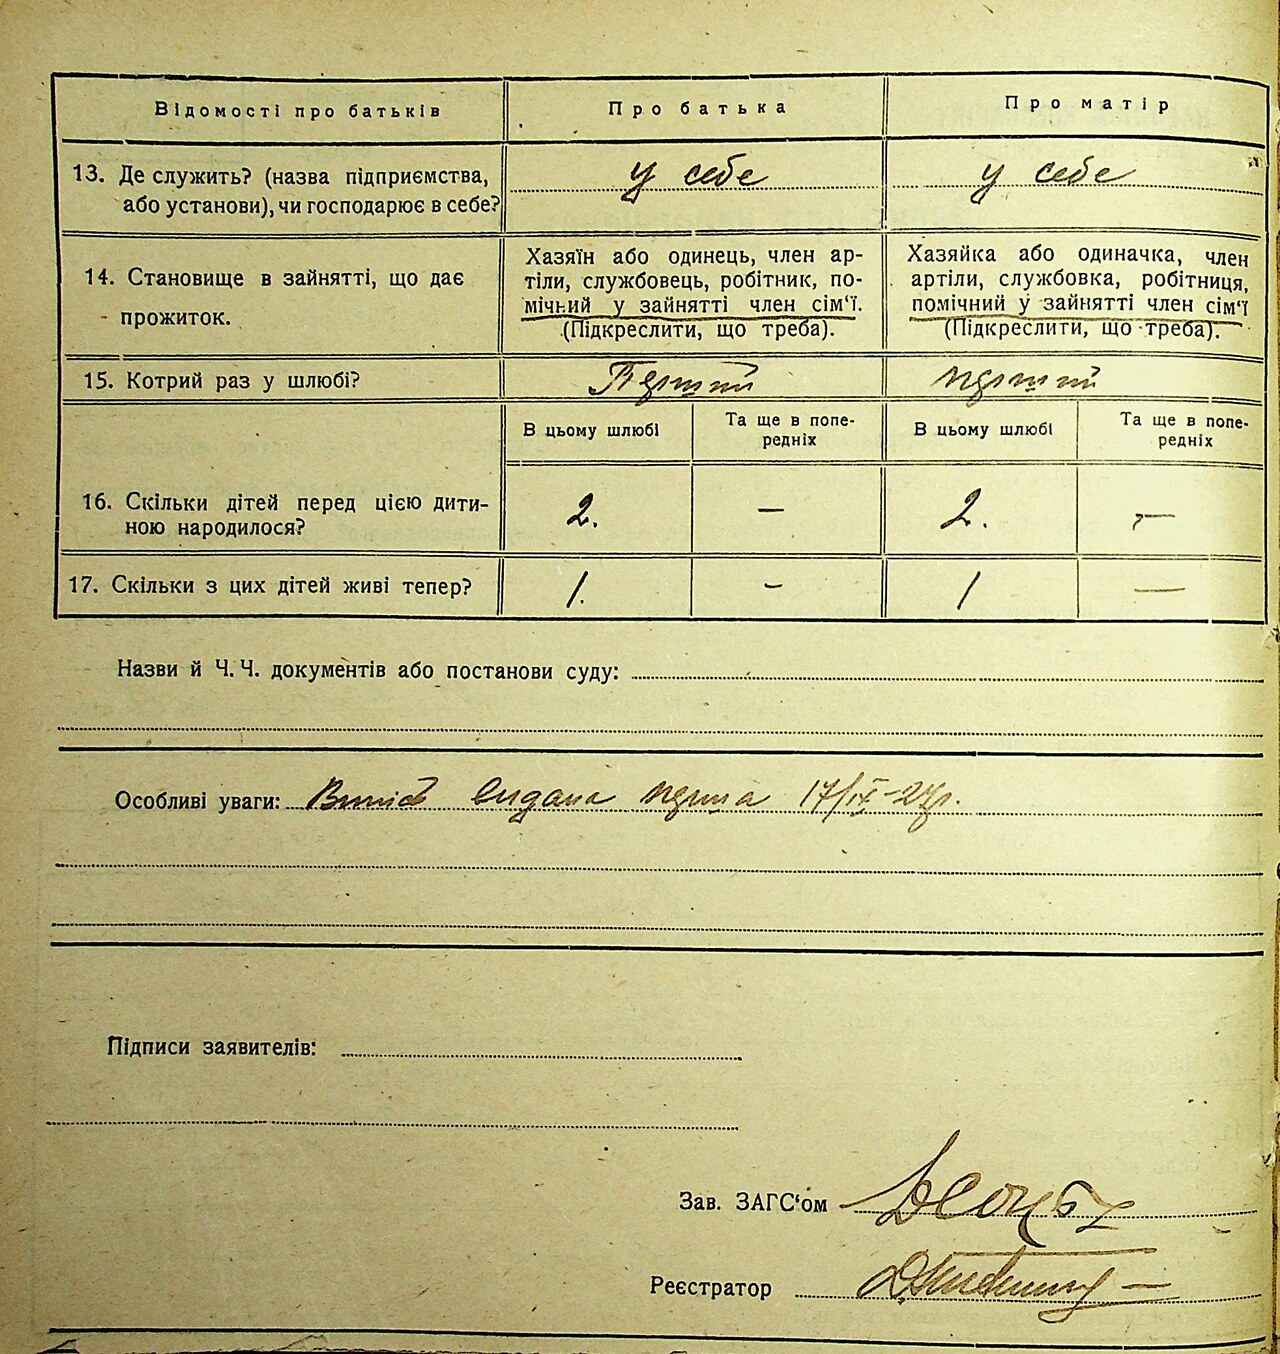 Відомості про батьків Про батька Про матір
13. Де служить? (назва підприємства, або установи), чи господарює в себе? у себе у себе
14. Становище в зайнятті, що дає прожиток.
Хазяїн або одинець, член ар-
тіли, службовець, робітник, по-
мічний у зайнятті член сім‘ї.
(Підкреслити, що треба).
Хазяйка або одиначка, член
артіли, службовка, робітниця,
помічний у зайнятті член сім‘ї
(Підкреслити, що треба).
15. Котрий раз у шлюбі? Перший перший
В цьому шлюбі Та ще в попе-
редніх В цьому шлюбі Та ще в попе-
редніх
16. Скільки дітей перед цією дити-
ною народилося? 2. — 2. —
17. Скільки з цих дітей живі тепер? 1. — 1 —
Назви й Ч.Ч. документів або постанови суду:
Особливі уваги: видана перша 17/IX-27р.
Підписи заявителів:
Зав. ЗАГС‘ом
Реєстратор